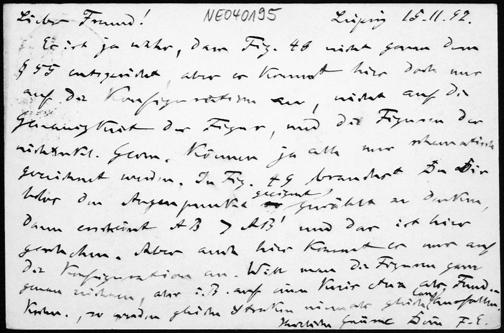 Lieber Freund! NE040195 Leipzig 15.11.42.
Es ist ja wahr, dass Fig. 48 nicht genau dem
§ 55 entspricht, aber es kommt hier doch nur
auf die Konfiguration an, nicht auf die
Genauigkeit der Figur, und die Figuren der
nichteukl. Geom. können ja alle nur schematisch
gezeichnet werden. In Fig. 49 brauchst Du Dir
den Augenpunkt geeignet gewählt zu denken,
dann erscheint AB > AB' und das ist hier
geschehen. Aber auch hier kommt es nur auf
die Konfiguration an. Will man die Figuren ganz
genau zeichnen, also z.B. auf einen Kreis als
so werden gleiche Strecken niemals gleich
Herzliche Grüsse Dein F. E.